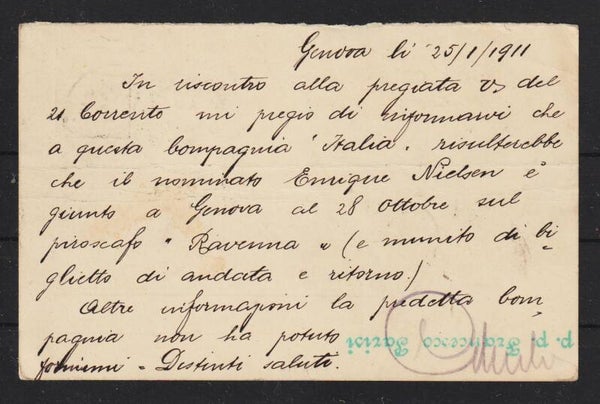 Genova li 25/1/1911
In riscontro alla pregiata Vs del
21 Corrente mi pregio di informarvi che
a questa Compagnia "Italia" risulterebbe
che il nominato Enrique Nielsen è
giunto a Genova al 28 Ottobre sul
piroscafo "Ravenna" (e munito di bi=
glietto di andata e ritorno)
Altre informazioni la predetta Com=
pagnia non ha potuto
fornirmi - Distinti saluti.
p. p. Francesco Parisi